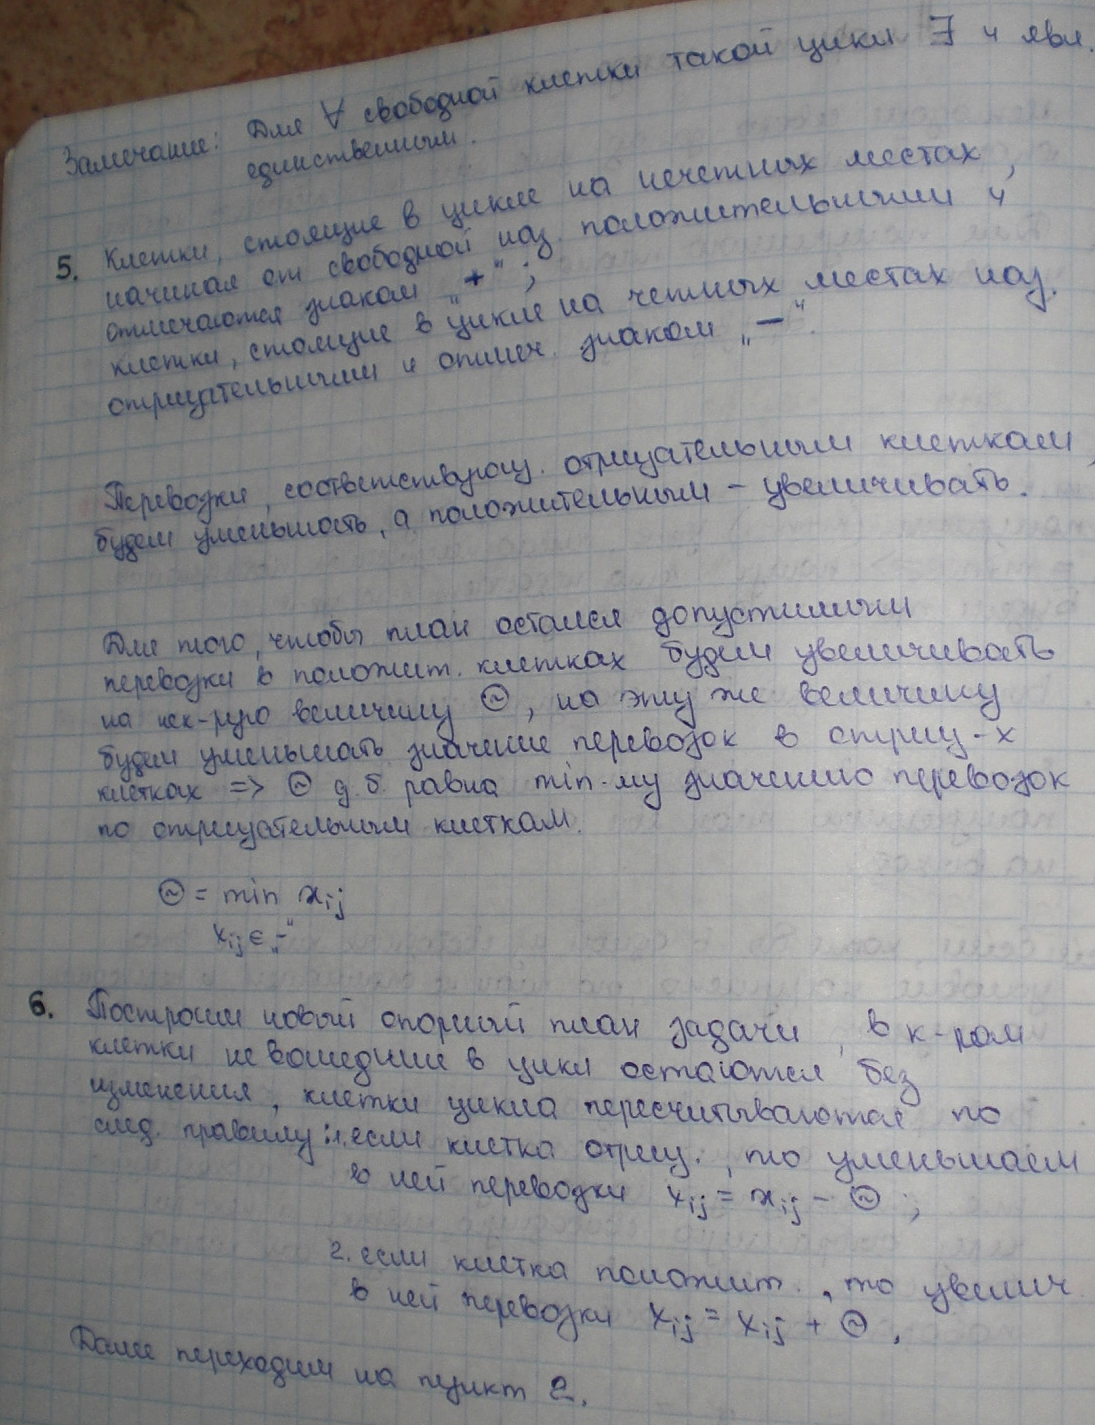 Замечание: Для ∀ свободной клетки такой цикл ∃ и явл.
единственным.
5. Клетки, стоящие в цикле на нечетных местах,
начиная от свободной наз. положительными и
отмечаются знаком „+“;
клетки, стоящие в цикле на четных местах наз.
отрицательными и отмеч. знаком „—“.
Перевозки, соответствующ. отрицательным клеткам,
будем уменьшать, а положительным - увеличивать.
Для того, чтобы план остался допустимым
перевозки в положит. клетках будем увеличивать
на нек-рую величину Θ, на эту же величину
будем уменьшать значение перевозок в отриц-х
клетках => Θ д.б. равна min-му значению перевозок
по отрицательным клеткам.
Θ = min xij
xij ∈ „-“
6. Построим новый опорный план задачи, в к-ром
клетки не вошедшие в цикл остаются без
изменения, клетки цикла пересчитываются по
след. правилу: 1. если клетка отриц., то уменьшаем
в ней перевозки xij = xij - Θ;
2. если клетка положит., то увелич
в ней перевозки xij = xij + Θ.
Далее переходим на пункт 2.